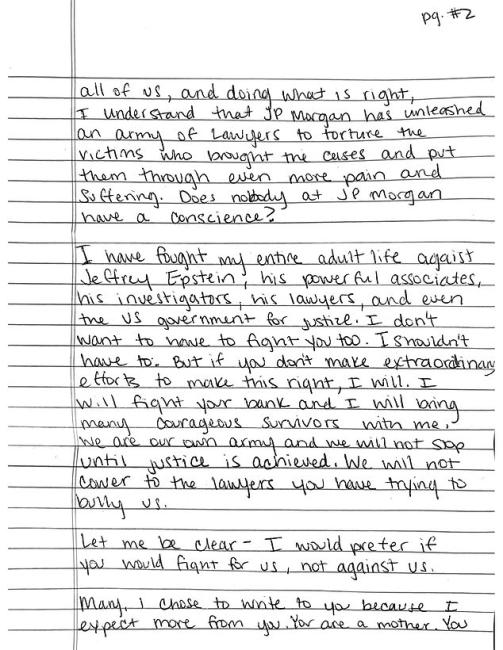 pg. #2
all of us, and doing what is right,
I understand that JP Morgan has unleashed
an army of Lawyers to torture the
victims who brought the cases and put
them through even more pain and
suffering. Does nobody at JP Morgan
have a conscience?
I have fought my entire adult life agaist
Jeffrey Epstein, his powerful associates,
his investigators, his lawyers, and even
the US government for justice. I don't
want to have to fight you too. I shouldn't
have to. But if you don't make extraordinary
efforts to make this right, I will. I
will fight your bank and I will bring
many courageous survivors with me.
We are our own army and we will not stop
until justice is achieved. We will not
cower to the lawyers you have trying to
bully us.
Let me be clear - I would prefer if
you would fight for us, not against us.
Mary, I chose to write to you because I
expect more from you. You are a mother. You